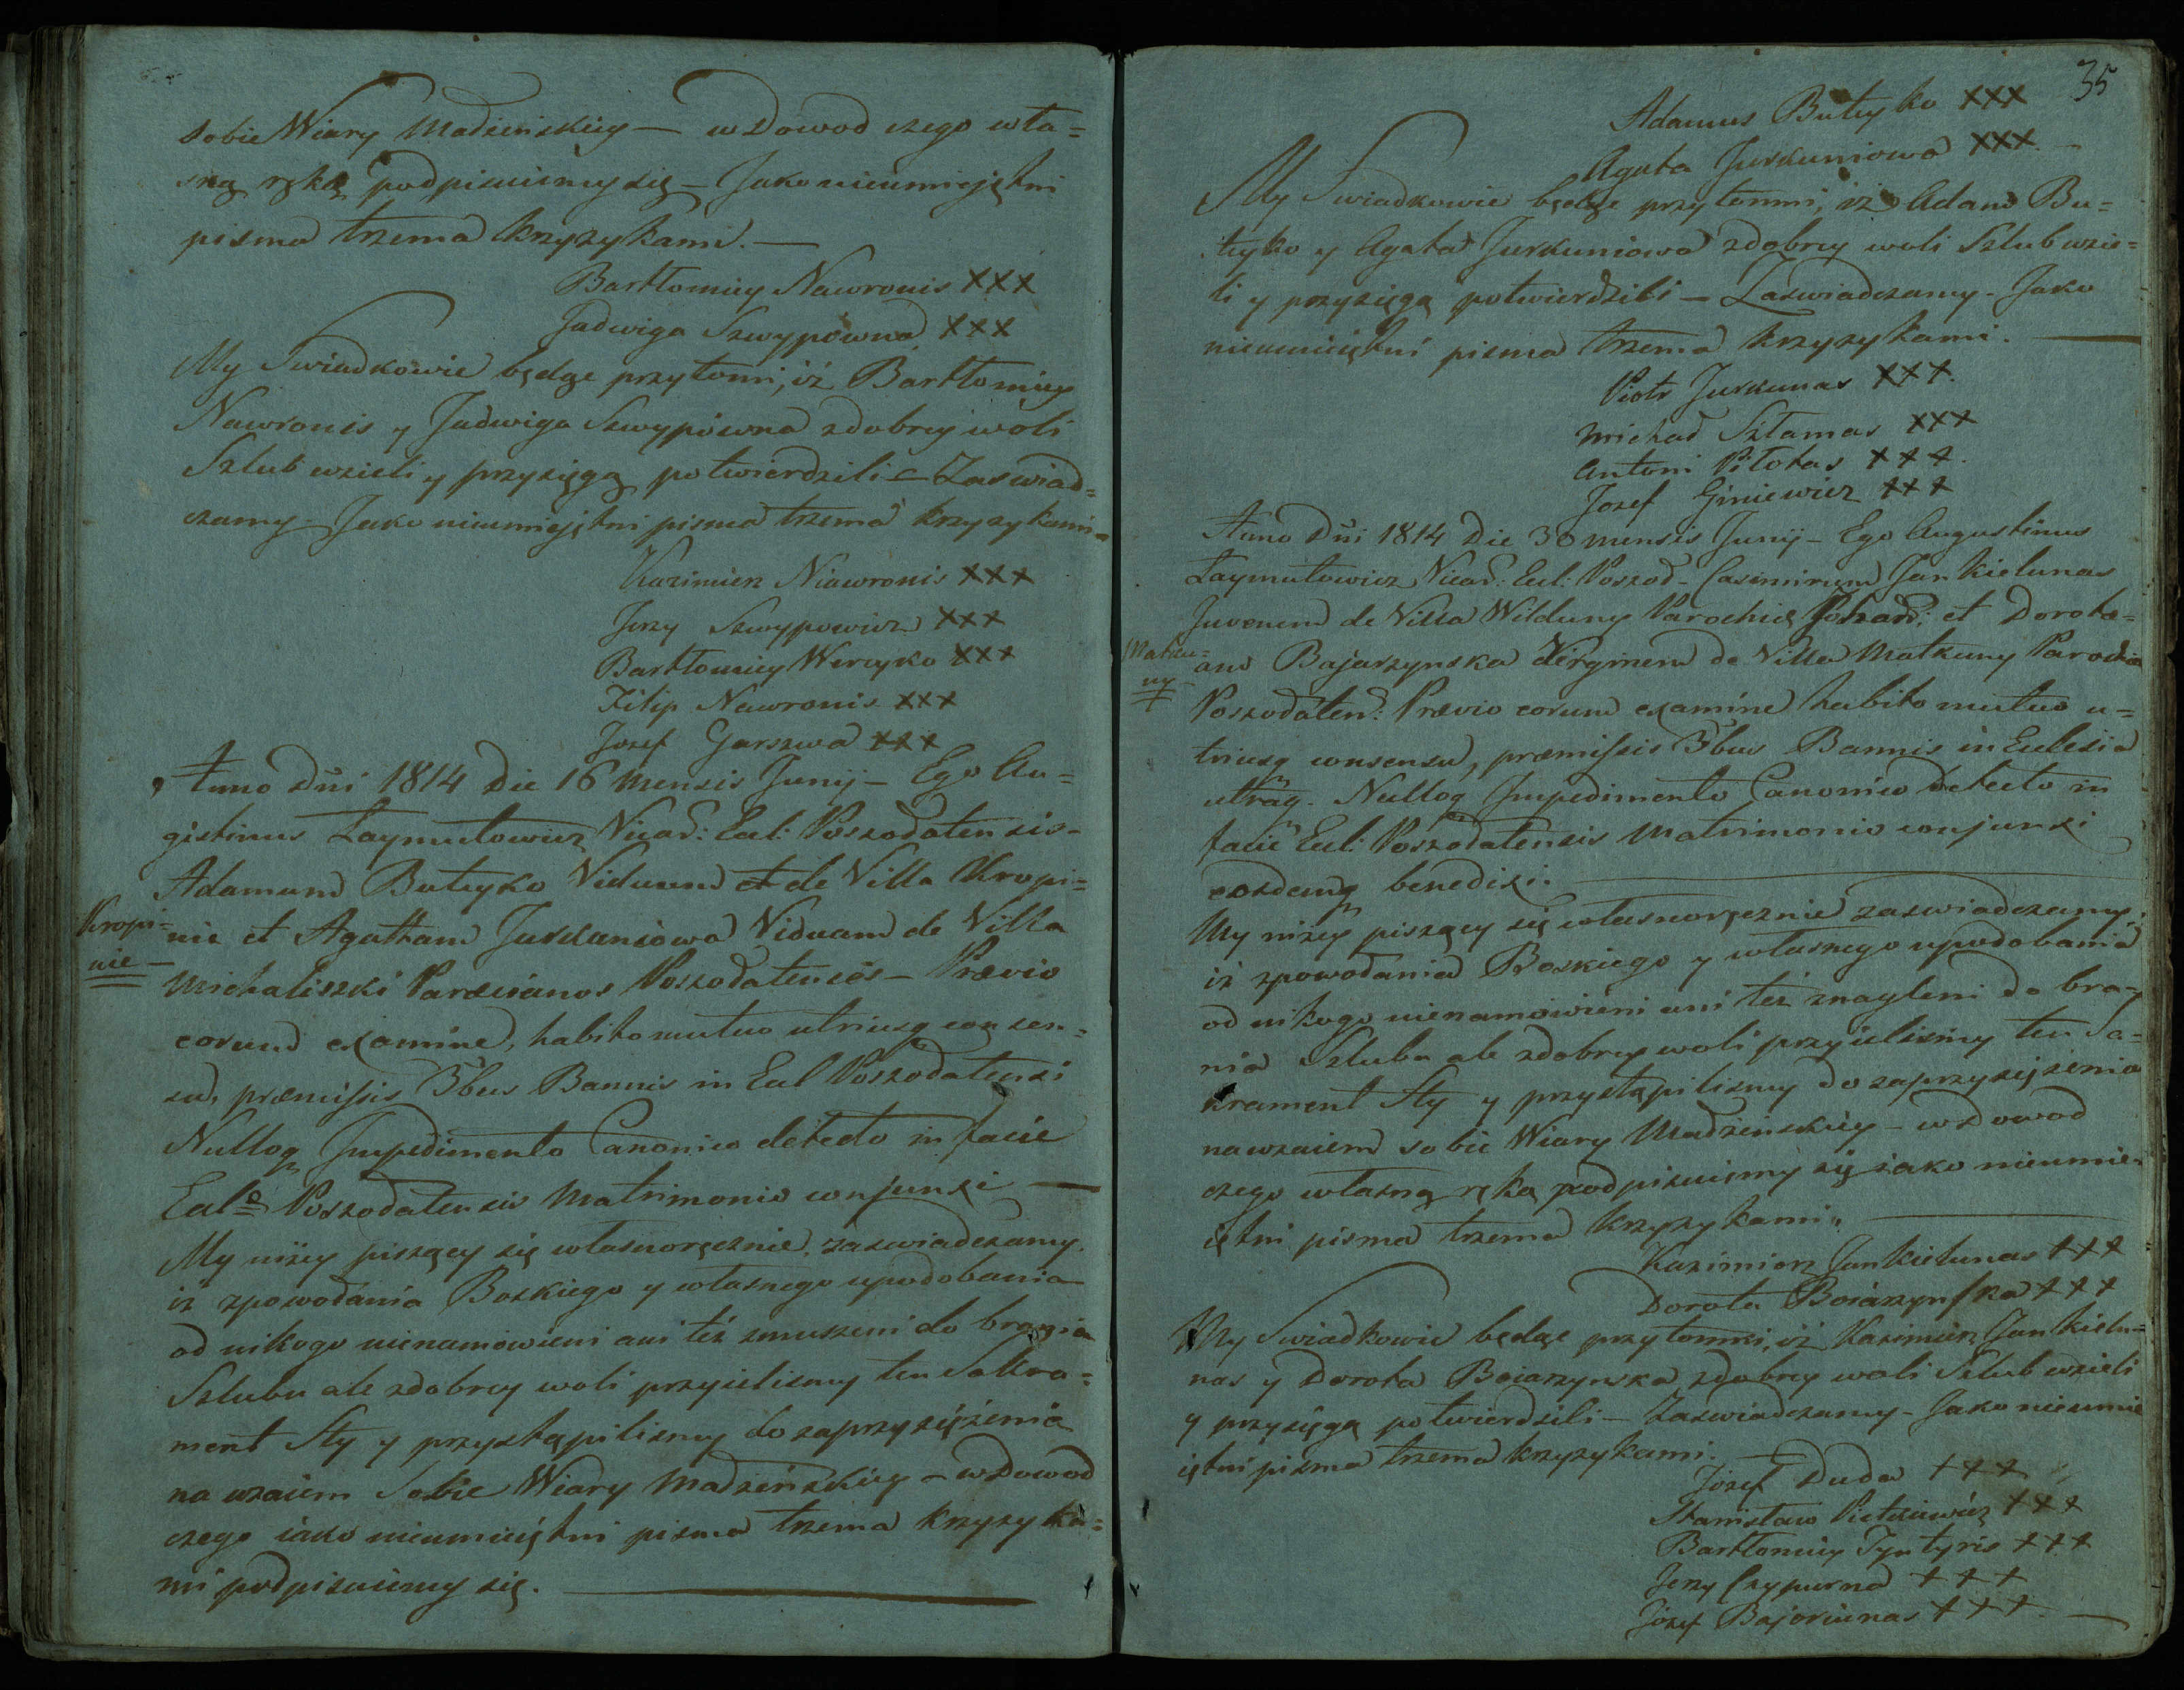 sobie Wiary Madieńskiey — w Dowod czego wła=
sną ręką podpisuiemy się — Jako nieumiejętni
pisma trzema krzyzykami. —
Bartłomiey Nawronis XXX
Jadwiga Szwypowna XXX
My Swiadkowie będąc przytomni, iż Bartłomiey
Nawronis y Jadwiga Szwypowna zdobrey woli
Szlub wzieli y przysięgą potwierdzili — Zaswiad=
czamy Jako nieumiejętni pisma trzema krzyzykami
Kazimierz Niawronis XXX
Jerzy Szwypowicz XXX
Bartłomiey Wercyko XXX
Filip Nawronis XXX
Jozef Garszwa XXX
Anno Dni 1814 Die 16 mensis Junij — Ego Au=
gistinus Laymutowicz Vicar: Eccl: Poszodatensis —
Adamum Butcyko Viduum et de Villa Kropi=
Kropi=
nie
nie et Agatham Jurkuniowa Viduam de Villa
Michaliszki Parecianos Poszodatensis — Prævio
eorund examine, habito mutuo utriusq consen=
su, præmissis 3bus Bannis in Eccl Poszodatensi
Nulloq Impedimento Canonico detecto in facie
Eccle Poszodatensis Matrimonio conjunxi —
My niżey piszący się własnoręcznie, zaswiadczamy.
iż zpowołania Boskiego y własnego upodobania
od nikogo nienamowieni ani też zmuszeni do brania
Szlubu ale zdobrey woli przyieliszmy ten Sakra=
ment Sty y przystąpiliszmy do zaprzysiężenia
na wzaiem Sobie Wiary Madzeńskiey — w Dowod
czego iako nieumieiętni pisma trzema krzyzyka=
mi podpisuiemy się. —
35
Adamus Butcyko XXX
Agata Jurkuniowa XXX. —
My Swiadkowie będąc przytomni, iż Adam Bu=
tcyko y Agata Jurkuniowa zdobrey woli Szlub wzie=
li y przysięgą potwierdzili — Zaswiadczamy — Jako
nieumieiętni pisma trzema krzyzykami. —
Piotr Jurkunas XXX.
Michał Szlamas XXX
Antoni Pilotas XXX.
Jozef Giniewicz XXX
Anno Dni 1814 Die 30 mensis Junij — Ego Augustinus
Laymutowicz Vicar: Eccl: Poszod — Casimirum Jankielunas
Juvenem de Villa Wilduny Parochiæ et Dorota=
Matku=
ny
am Bajarzynska Virginem de Villa Matkuny Parochiæ
Poszodaten: Prævio eorund examine habito mutuo u=
triusq consensu, præmissis 3bus Bannis in Ecclesia
utraq. Nulloq Impedimento Canonico detecto in
facie Eccl: Poszodatensis Matrimonio conjunxi
eosdemq benedixi. —
My niżey piszący się własnoręcznie zaswiadczamy;
iż zpowołania Boskiego y własnego upodobania
od nikogo nienamowieni ani też znagleni do bra=
nia Szlubu ale zdobrey woli przyieliszmy ten Sa=
krament Sty y przystąpiliszmy do zaprzysiężenia
nawzaiem sobie Wiary Madzenskiey — w dowod
czego własną ręką podpisuiemy się iako nieumie=
iętni pisma trzema krzyzykami. —
Kazimierz Jankielunas XXX
Dorota Boiarzynska XXX
My Swiadkowie będąc przytomni, iż Kazimierz Jankielu=
nas y Dorota Boiarzynska zdobrey woli Szlub wzieli
y przysięgą potwierdzili — Zaswiadczamy — Jako nieumie
iętni pisma trzema krzyzykami.
Jozef Duda XXX
Stanisław Pietkiewicz XXX
Bartłomiey Tyntyris XXX
Jerzy Czypurna XXX
Jozef Bajoriunas XXX. —